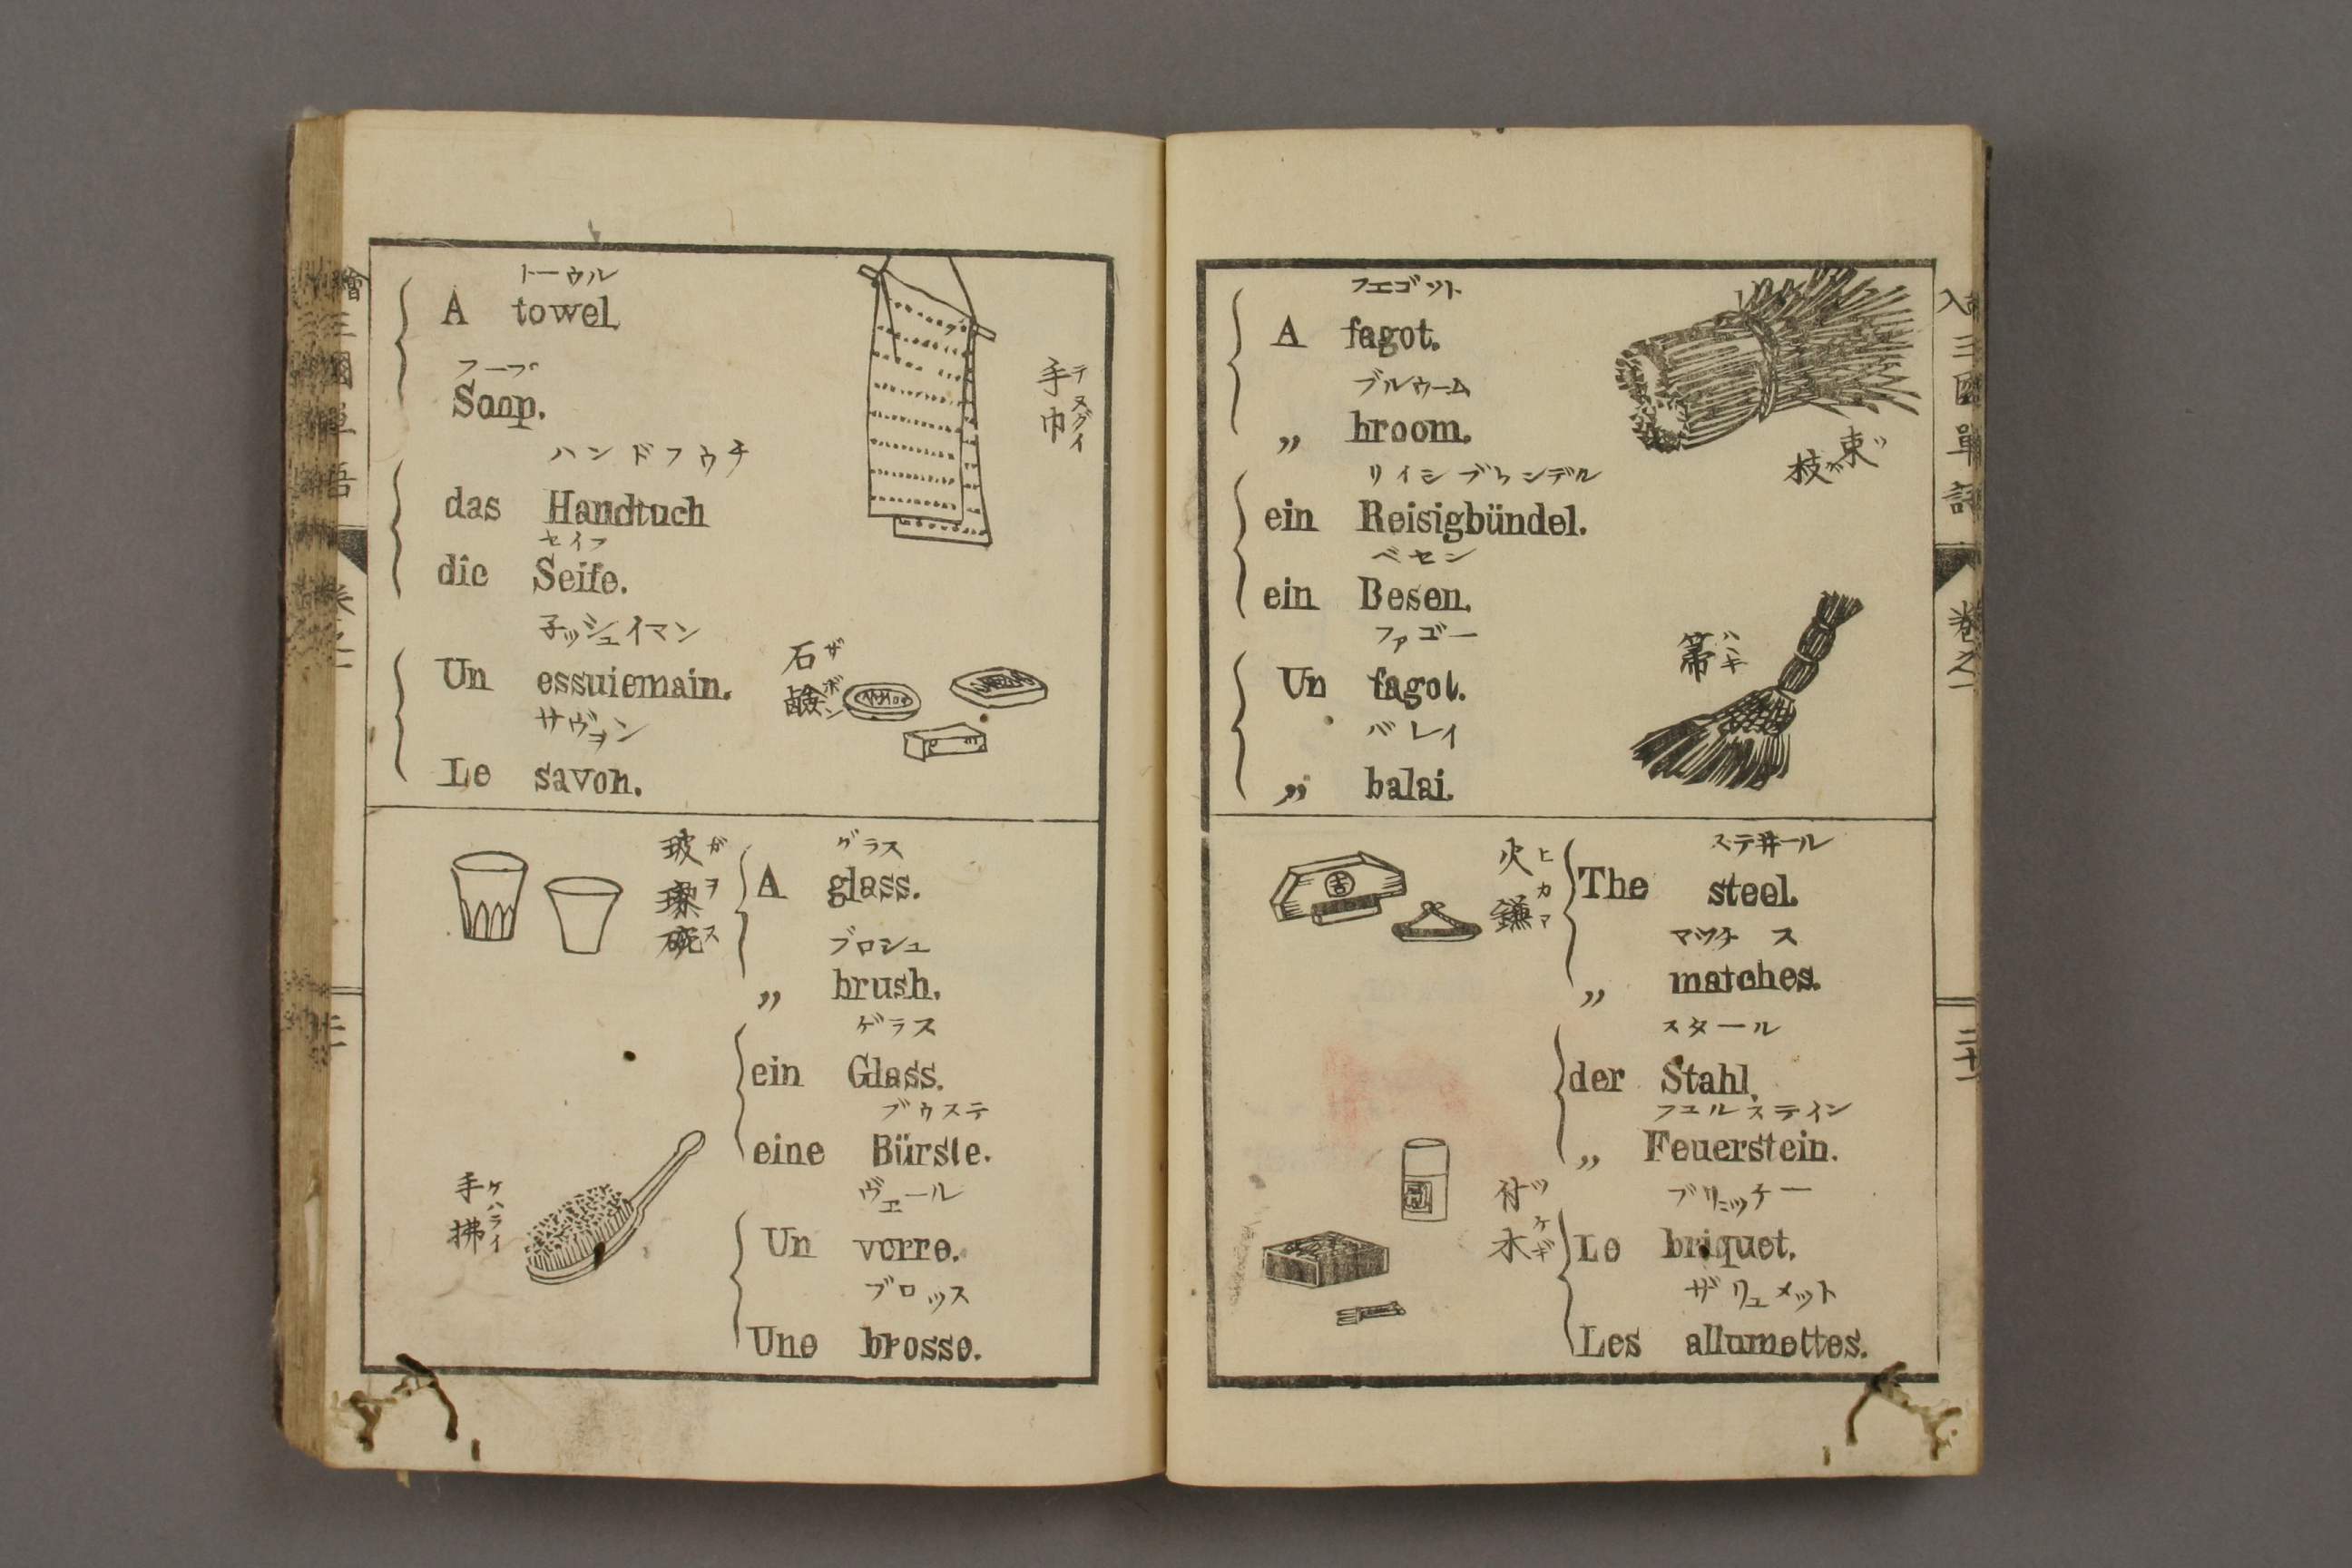 トーウル
A towel
フープ
Soap.
手巾
テヌグイ
ハンドフウチ
das Handtuch
セイフ
die Seife.
子ッシュイマン
Un essuiemain.
サヴヨン
Le savon.
石鹸
ザボン
玻璨碗
ガラス
グラス
A glass.
ブロシュ
„ brush.
ゲラス
ein Glass.
ブウステ
eine Bürste.
ヴエール
Un verre.
ブロッス
Une brosse.
手拂
ケハライ
フエゴット
A fagot.
ブルウーム
„ broom.
リイシブウンデル
ein Reisigbündel.
ベセン
ein Besen.
ファゴー
Un fagot.
バレイ
„ balai.
束枝
箒
ハハキ
火鎌
ヒカマ
ステ井ール
The steel.
マッチス
„ matches.
スタール
der Stahl.
フユルステイン
„ Feuerstein.
ブリニッチー
Le briquet.
ザリュメット
Les allumettes.
付木
ツケギ
入三國單語
卷之一
二十一